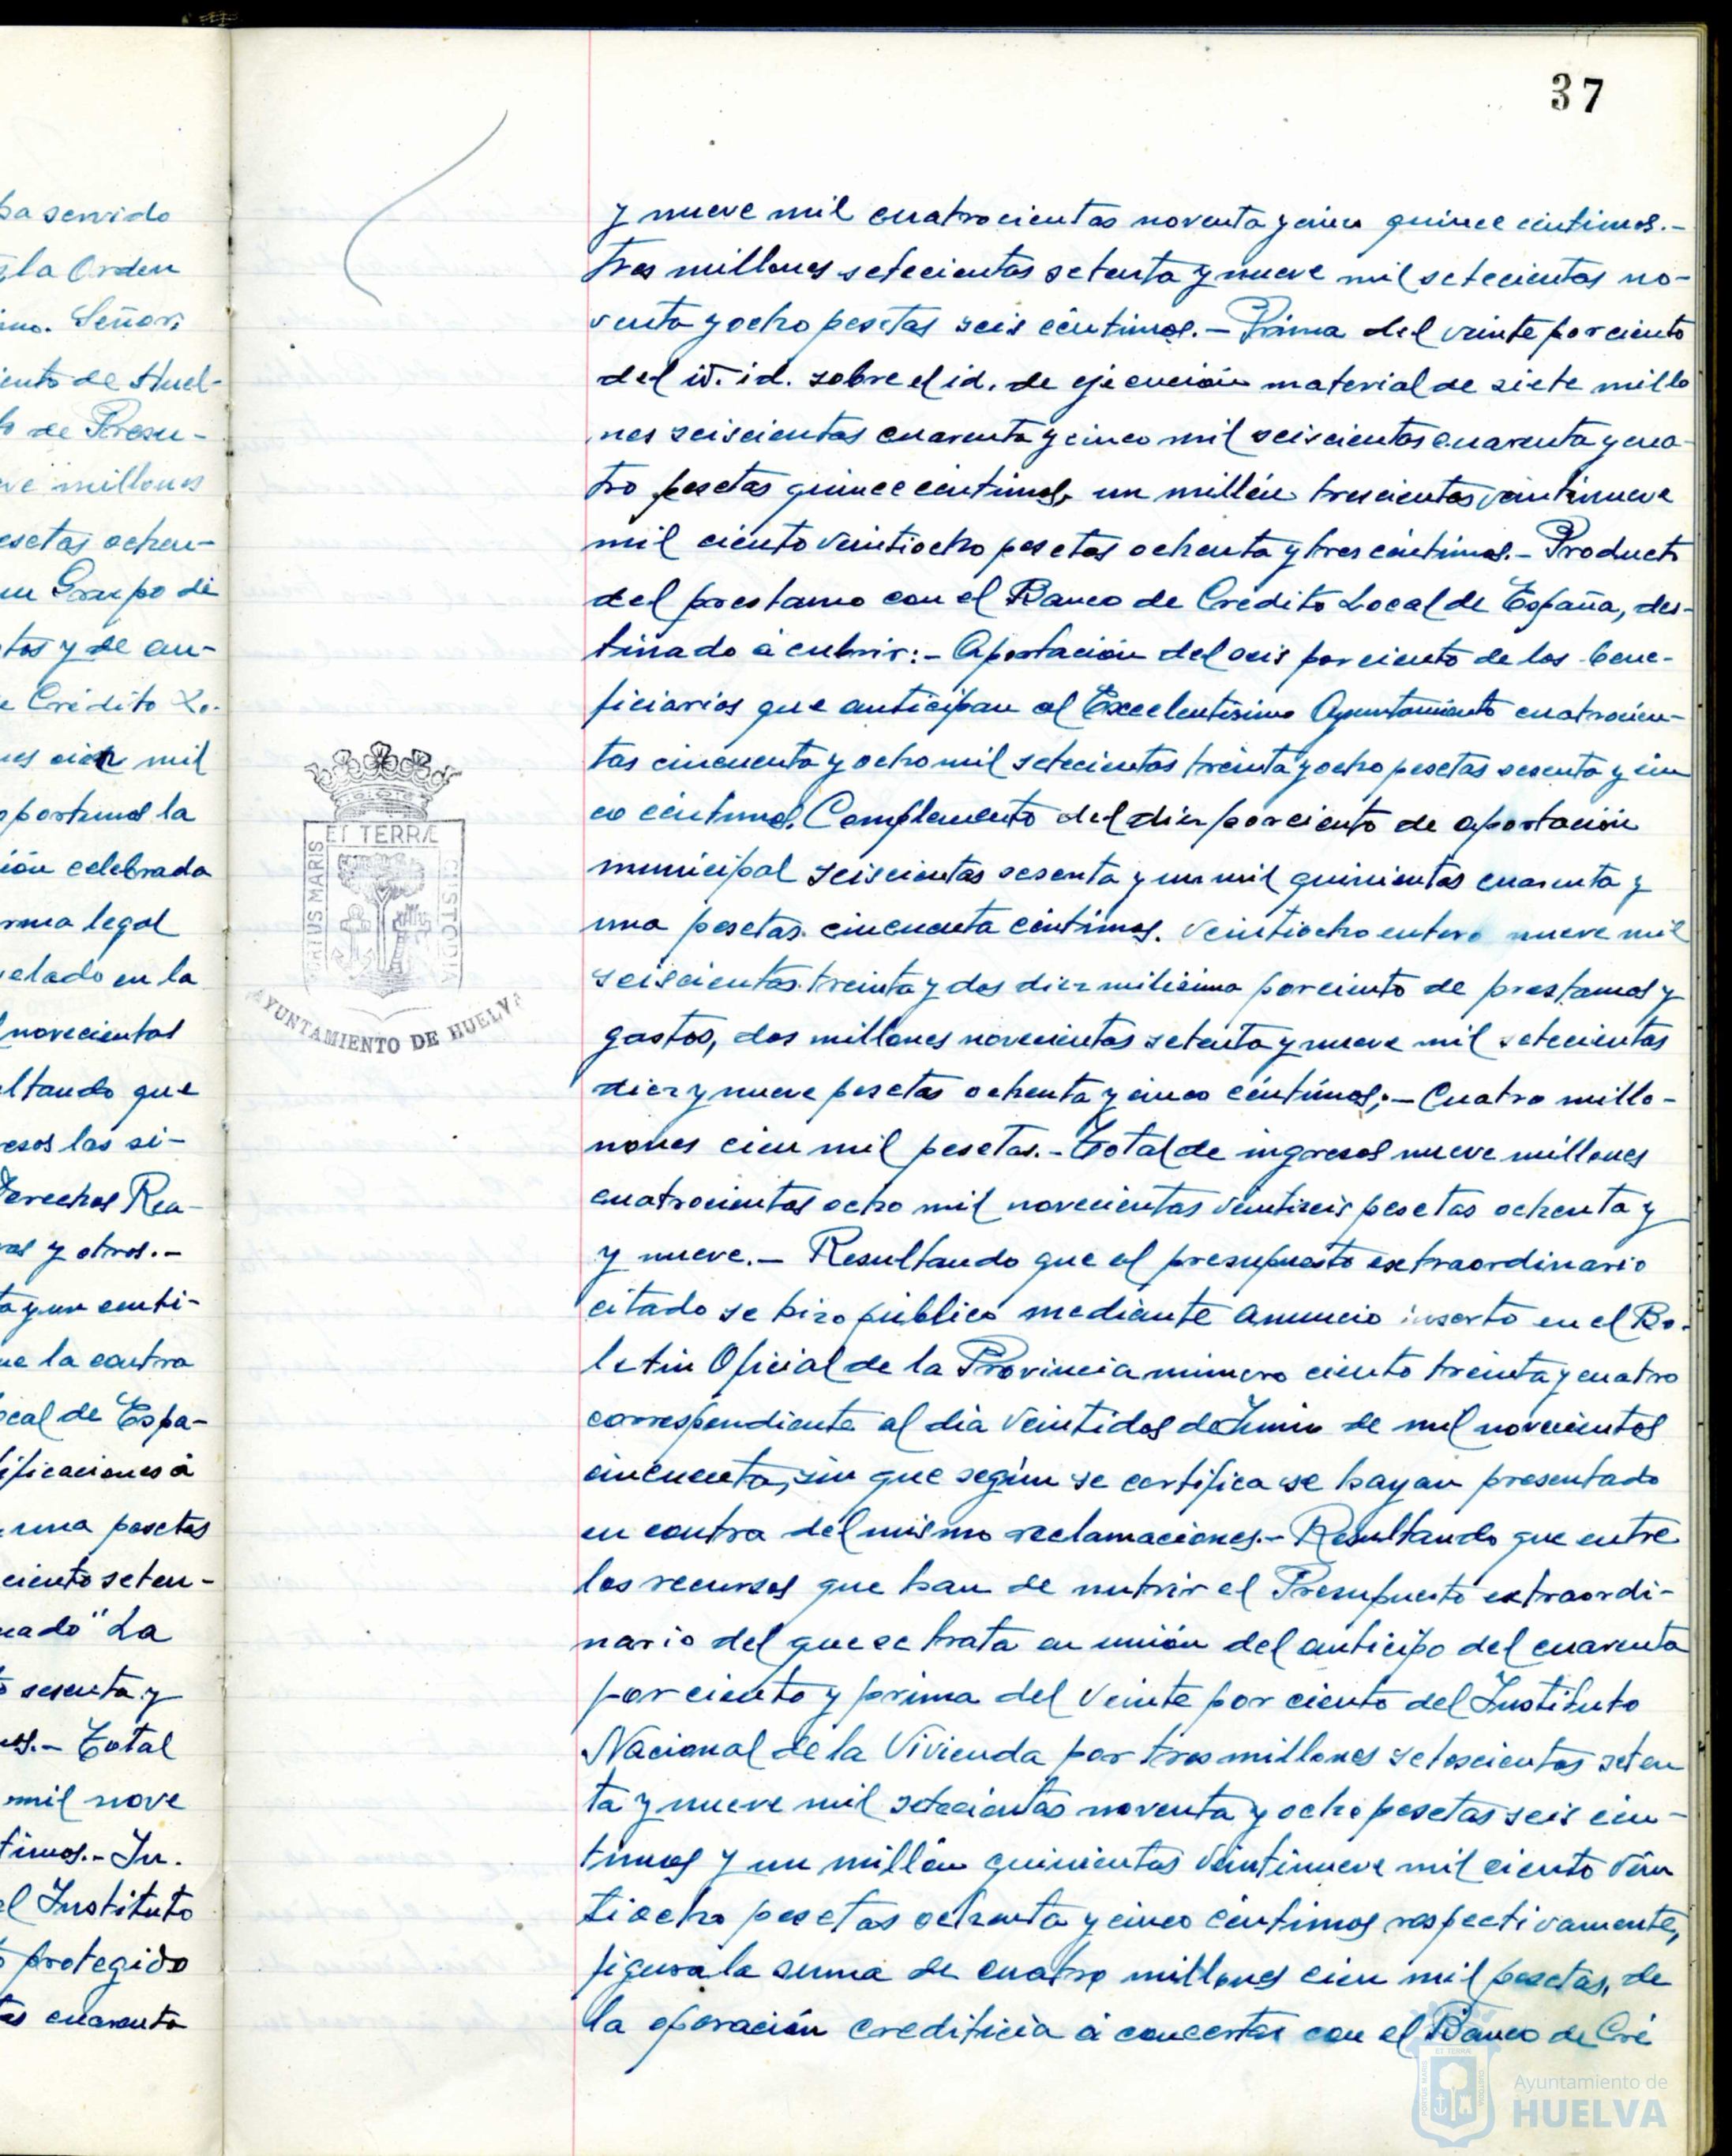 37
ha servido
la Orden
imo. Señor;
iento de Huel-
to de Presu-
ve millones
esetas ochen-
un Grupo de
tos y de cu-
e Crédito Lo-
nes cien mil
oportunos la
ión celebrada
rma legal
elado en la
novecientos
ltando que
resos las si-
Derechos Rea-
ras y otros.-
ta y un centi-
ue la contra
ocal de Espa-
ificaciones á
una pesetas
ciento seten-
cado" La
sesenta y
os.- Total
mil nove
timos.- In.
el Instituto
protegido
tas cuarenta
y nueve mil cuatrocientas noventa y cinco quince céntimos.-
tres millones setecientas setenta y nueve mil setecientas no-
venta y ocho pesetas seis céntimos.- Prima del veinte por ciento
del id. id. sobre el id. de ejecución material de siete millo
nes seiscientas cuarenta y cinco mil seiscientas cuarenta y cua-
tro pesetas quince céntimos, un millón trescientas veintinueve
mil ciento veintiocho pesetas ochenta y tres céntimos.- Producto
del prestamo con el Banco de Crédito Local de España, des-
tinado á cubrir:- Aportación del seis por ciento de los bene-
ficiarios que anticipan al Excelentísimo Ayuntamiento cuatrocien-
tas cincuenta y ocho mil setecientas treinta y ocho pesetas sesenta y cin
co céntimos. Complemento del diez por ciento de aportación
municipal seiscientas sesenta y un mil quinientas cuarenta y
una pesetas cincuenta céntimos. Veintiocho entero nueve mil
seiscientas treinta y dos diezmilisima por ciento de prestamos y
gastos, dos millones novecientas setenta y nueve mil setecientas
diez y nueve pesetas ochenta y cinco céntimos;- Cuatro millo-
nones cien mil pesetas.- Total de ingresos nueve millones
cuatrocientas ocho mil novecientas veintiseis pesetas ochenta y
y nueve.- Resultando que el presupuesto extraordinario
citado se hizo público mediante anuncio inserto en el Bo-
letin Oficial de la Provincia número ciento treinta y cuatro
correspondiente al dia veintidos de Junio de mil novecientos
cincuenta, sin que según se certifica se hayan presentado
en contra del mismo reclamaciones.- Resultando que entre
los recursos que han de nutrir el Presupuesto extraordi-
nario del que se trata en unión del anticipo del cuarenta
por ciento y prima del veinte por ciento del Instituto
Nacional de la Vivienda por tres millones setescientas seten
ta y nueve mil setecientas noventa y ocho pesetas seis cén-
timos y un millón quinientas veintinueve mil ciento vein
tiocho pesetas ochenta y cinco céntimos respectivamente,
figura la suma de cuatro millones cien mil pesetas, de
la operación crediticia á concertar con el Banco de Cré
PORTUS MARIS
ET TERRÆ
CUSTODIA
AYUNTAMIENTO DE HUELVA
Ayuntamiento de
HUELVA